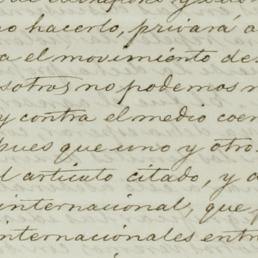 o hacerlo, privará a
a el movimiento de
sotros no podemos
y contra el medio coer
pues que uno y otro
l artículo citado, y
internacional, que
internacionales entr